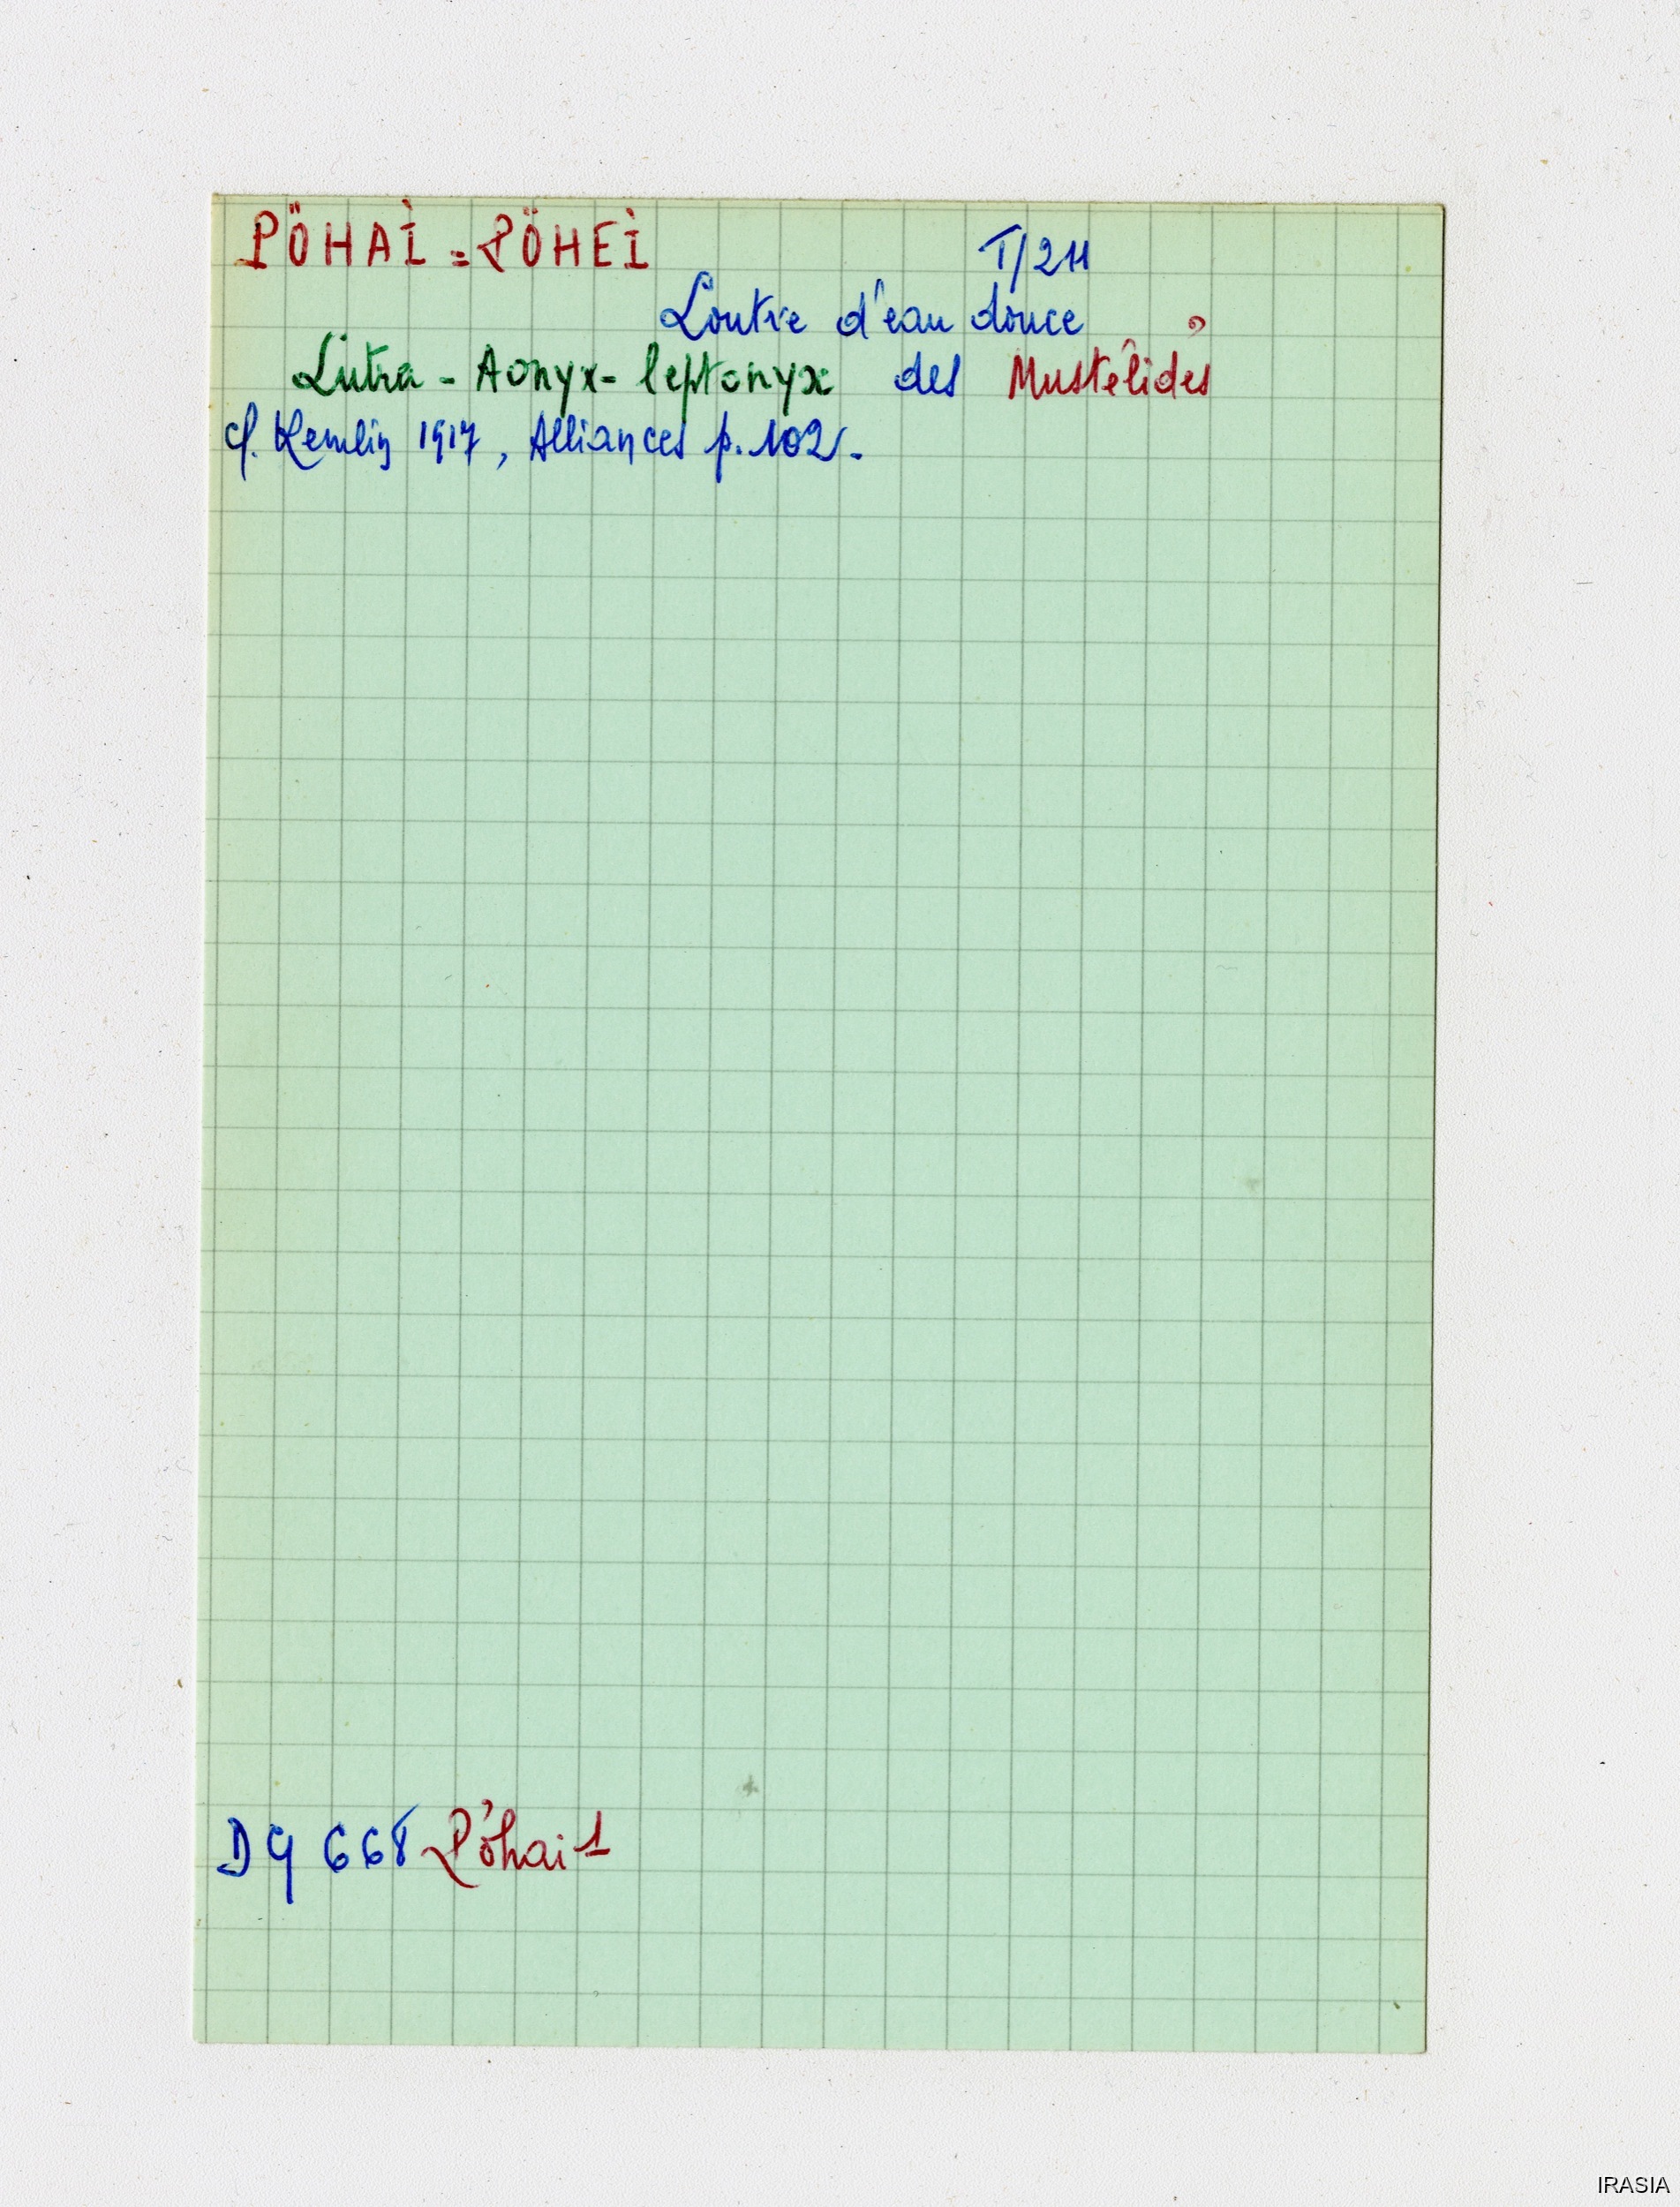 PÖHAÌ = PÖHEÌ T/211
Loutre d'eau douce
Lutra - Aonyx - leptonyx des Mustélidés
cf. Kemlin 1917, Alliances p. 102.
D9 668 Pơ̆hai 1
IRASIA